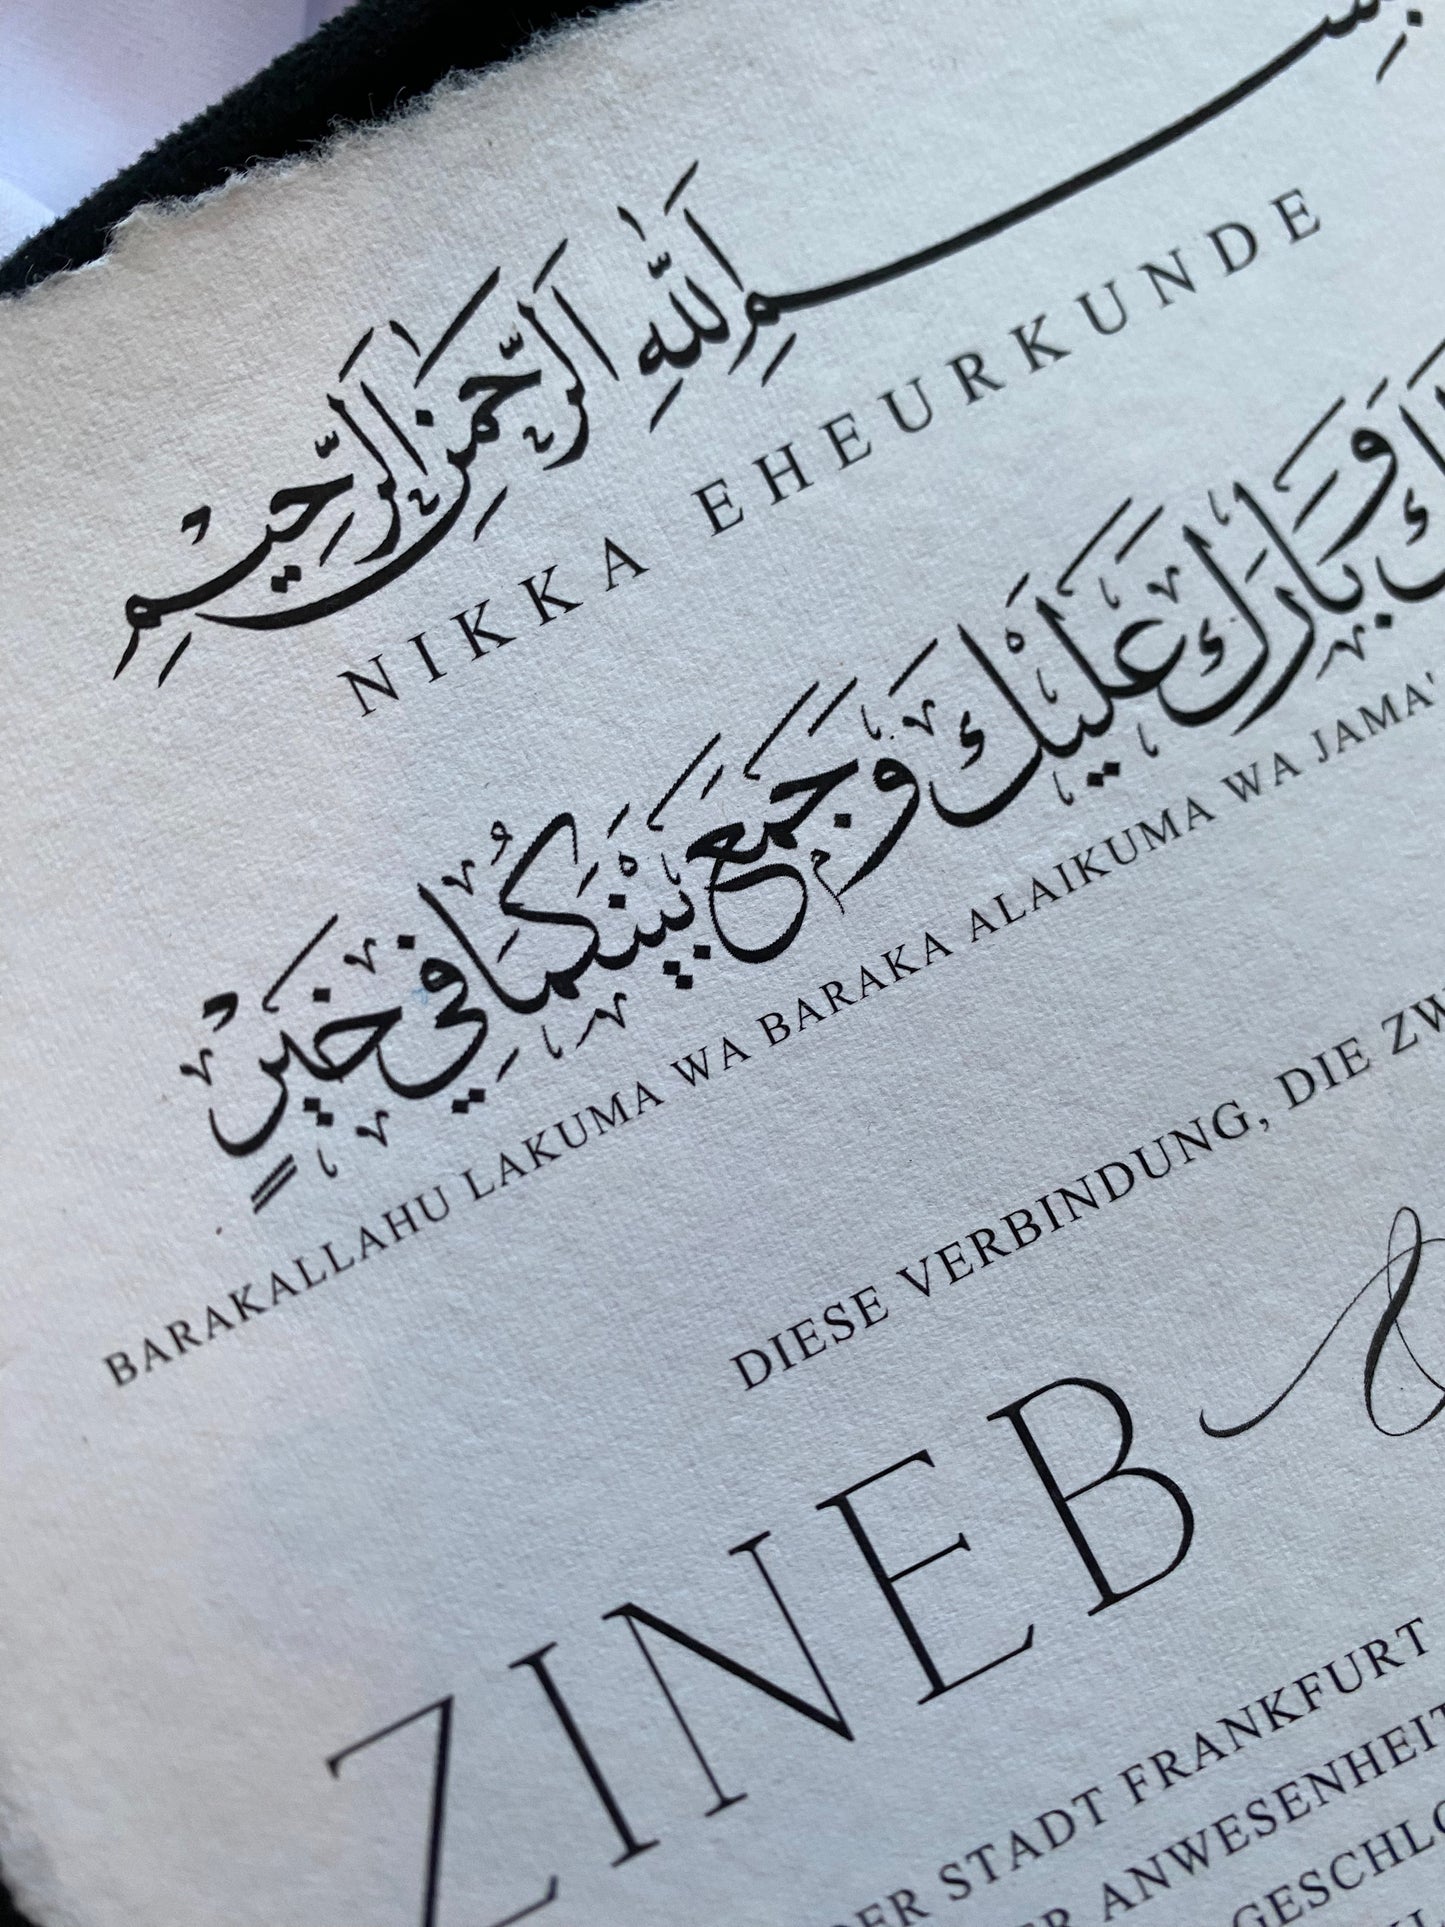 بِسْمِ اللهِ الرَّحْمٰنِ الرَّحِيْمِ
NIKKA EHEURKUNDE
وَبَارَكَ عَلَيْكَ وَجَمَعَ بَيْنَكُمَا فِي خَيْرٍ
BARAKALLAHU LAKUMA WA BARAKA ALAIKUMA WA JAMA'
DIESE VERBINDUNG, DIE ZW
ZINEB &
ER STADT FRANKFURT
R ANWESENHEIT
GESCHLO